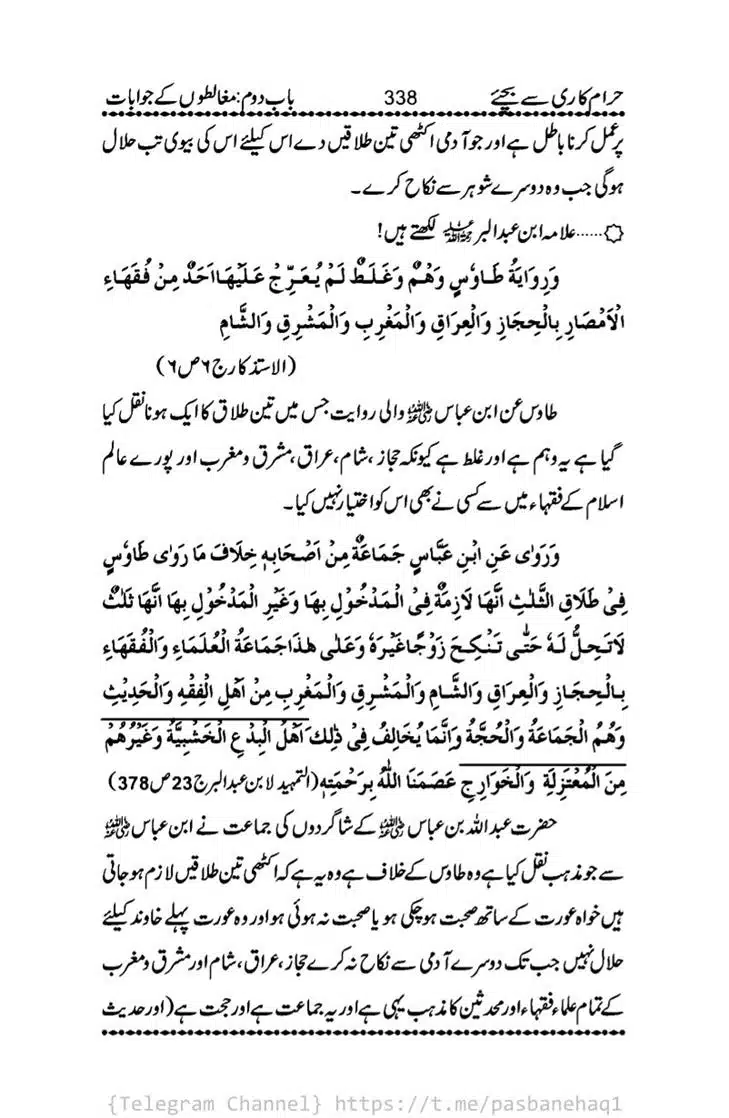 حرام کاری سے بچئے 338 باب دوم: مغالطوں کے جوابات
پر عمل کرنا باطل ہے اور جو آدمی اکٹھی تین طلاقیں دے اس کیلئے اس کی بیوی تب حلال
ہوگی جب وہ دوسرے شوہر سے نکاح کرے۔
۞......علامہ ابن عبدالبر رحمۃ اللہ علیہ لکھتے ہیں!
وَرِوَايَةُ طَاوٗسٍ وَهْمٌ وَغَلَطٌ لَمْ يُعَرِّجْ عَلَيْهَا اَحَدٌ مِنْ فُقَهَاءِ
الْاَمْصَارِ بِالْحِجَازِ وَالْعِرَاقِ وَالْمَغْرِبِ وَالْمَشْرِقِ وَالشَّامِ
(الاستذکار ج۶ ص۶)
طاوس عن ابن عباس رضی اللہ عنہ والی روایت جس میں تین طلاق کا ایک ہونا نقل کیا
گیا ہے یہ وہم ہے اور غلط ہے کیونکہ حجاز، شام، عراق، مشرق و مغرب اور پورے عالم
اسلام کے فقہاء میں سے کسی نے بھی اس کو اختیار نہیں کیا۔
وَرَوٰى عَنِ ابْنِ عَبَّاسٍ جَمَاعَةٌ مِنْ اَصْحَابِهٖ خِلَافَ مَا رَوٰى طَاوٗسٌ
فِىْ طَلَاقِ الثَّلٰثِ اَنَّهَا لَازِمَةٌ فِى الْمَدْخُوْلِ بِهَا وَغَيْرِ الْمَدْخُوْلِ بِهَا اَنَّهَا ثَلٰثٌ
لَا تَحِلُّ لَهٗ حَتّٰى تَنْكِحَ زَوْجًا غَيْرَهٗ وَعَلٰى هٰذَا جَمَاعَةُ الْعُلَمَاءِ وَالْفُقَهَاءِ
بِالْحِجَازِ وَالْعِرَاقِ وَالشَّامِ وَالْمَشْرِقِ وَالْمَغْرِبِ مِنْ اَهْلِ الْفِقْهِ وَالْحَدِيْثِ
وَهُمُ الْجَمَاعَةُ وَالْحُجَّةُ وَاِنَّمَا يُخَالِفُ فِىْ ذٰلِكَ اَهْلُ الْبِدْعِ الْخَشْبِيَّةُ وَغَيْرُهُمْ
مِنَ الْمُعْتَزِلَةِ وَالْخَوَارِجِ عَصَمَنَا اللّٰهُ بِرَحْمَتِهٖ (التمہید لابن عبدالبر ج23 ص378)
حضرت عبداللہ بن عباس رضی اللہ عنہ کے شاگردوں کی جماعت نے ابن عباس رضی اللہ عنہ
سے جو مذہب نقل کیا ہے وہ طاوس کے خلاف ہے وہ یہ ہے کہ اکٹھی تین طلاقیں لازم ہو جاتی
ہیں خواہ عورت کے ساتھ صحبت ہو چکی ہو یا صحبت نہ ہوئی ہو اور وہ عورت پہلے خاوند کیلئے
حلال نہیں جب تک دوسرے آدمی سے نکاح نہ کرے حجاز، عراق، شام اور مشرق و مغرب
کے تمام علماء فقہاء اور محدثین کا مذہب یہی ہے اور یہ جماعت ہے اور حجت ہے (اور حدیث
{Telegram Channel} https://t.me/pasbanehaq1